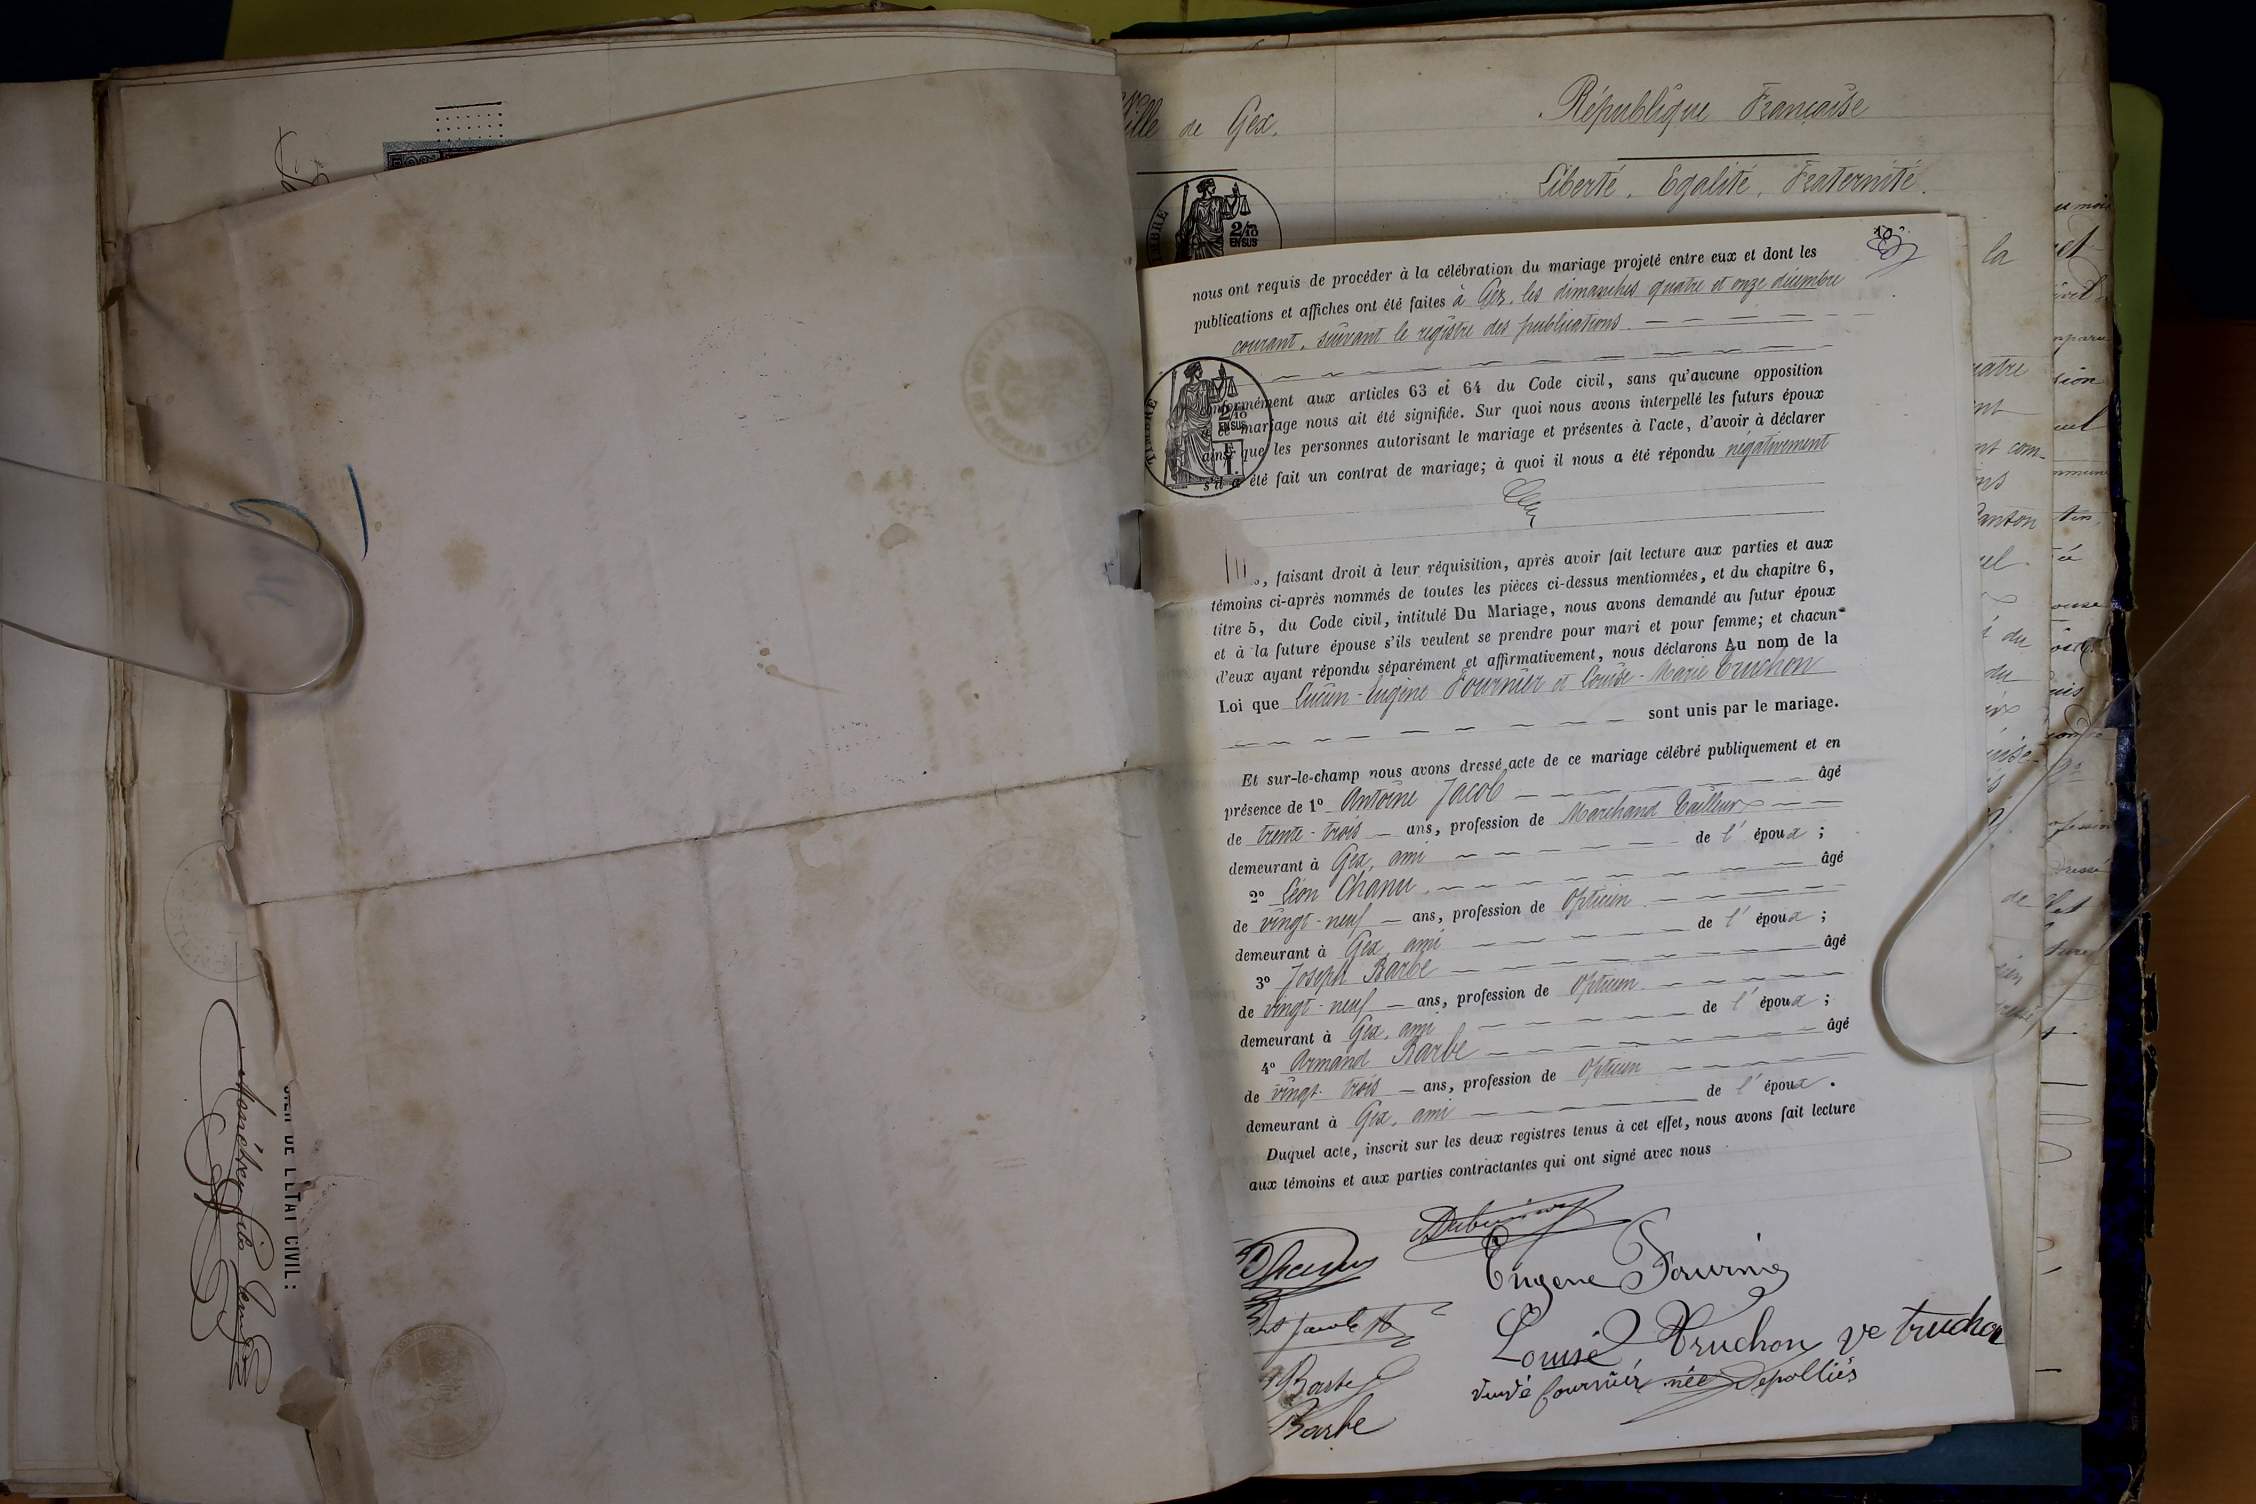 Ville de Gex.
République Française
Liberté. Egalité. Fraternité.
TIMBRE
2/10
EN SUS
10
la
nous ont requis de procéder à la célébration du mariage projeté entre eux et dont les
publications et affiches ont été faites à Gex, les dimanches quatre et onze décembre
courant, suivant le registre des publications.
TIMBRE
2/10
EN SUS
conformément aux articles 63 et 64 du Code civil, sans qu'aucune opposition
à ce mariage nous ait été signifiée. Sur quoi nous avons interpellé les futurs époux
ainsi que les personnes autorisant le mariage et présentes à l'acte, d'avoir à déclarer
s'il a été fait un contrat de mariage; à quoi il nous a été répondu négativement
faisant droit à leur réquisition, après avoir fait lecture aux parties et aux
témoins ci-après nommés de toutes les pièces ci-dessus mentionnées, et du chapitre 6,
titre 5, du Code civil, intitulé Du Mariage, nous avons demandé au futur époux
et à la future épouse s'ils veulent se prendre pour mari et pour femme; et chacun
d'eux ayant répondu séparément et affirmativement, nous déclarons Au nom de la
Loi que Lucien-Eugène Fournier et Louise-Marie Truchon
sont unis par le mariage.
Et sur-le-champ nous avons dressé acte de ce mariage célébré publiquement et en
présence de 1° Antoine Jacob âgé
de trente-trois ans, profession de Marchand Tailleur
demeurant à Gex, ami de l'époux;
2° Léon Chanu âgé
de vingt-neuf ans, profession de Opticien
demeurant à Gex, ami de l'époux;
3° Joseph Barbe âgé
de vingt-neuf ans, profession de Opticien
demeurant à Gex, ami de l'époux;
4° Armand Barbe âgé
de vingt-trois ans, profession de Opticien
demeurant à Gex, ami de l'époux.
Duquel acte, inscrit sur les deux registres tenus à cet effet, nous avons fait lecture
aux témoins et aux parties contractantes qui ont signé avec nous
Eugene Fournier
Louise Truchon ve truchon
veuve fournier née Depolliés
Barbe
Barbe
DE L'ETAT CIVIL: